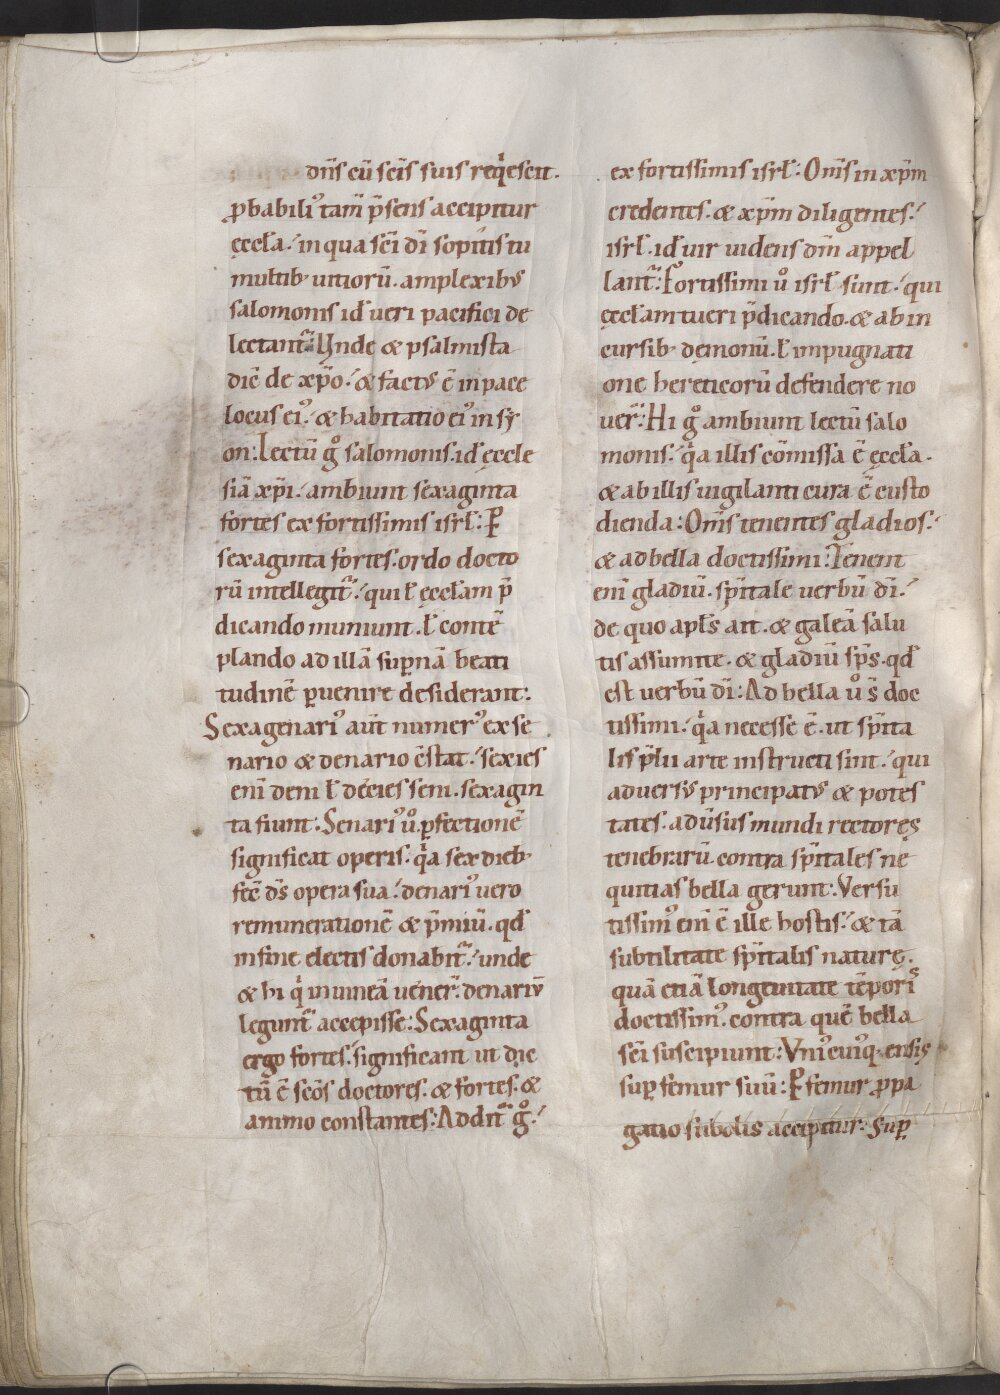 dn̄s cū sc̄is suis reqͥescit.
ꝓbabiliꝰ tam̄ p̄sens accipitur
ęccl̄a.ʼ in qua sc̄i dī sopitis tu
multib; uitiorū. amplexibꝰ
salomonis id ̄ ueri pacifici de
lectant᷑. Unde & psalmista
dic̄ de xp̄o.ʼ & factꝰ ē in pace
locus eiꝰ.ʼ & habitatio eiꝰ in sy
on: Lectū gͦ salomonis. id ̄ ęccle
siā xp̄i.ʼ ambiunt sexaginta
fortes ex fortissimis isrl̄: Ꝑ
sexaginta fortes. ordo docto
rū intellegit᷑.ʼ qui l̄ ęccl̄am p̄
dicando muniunt. l̄ contē
plando ad illā suꝑnā beati
tudinē ꝑuenire desiderant:
Sexagenariꝰ aūt numerꝰ ex se
nario & denario c̄stat.ʼ sexies
enī deni l̄ decies seni. sexagin
ta fiunt: Senariꝰ uͦ. ꝑfectionē
significat operis.ʼ qͥa sex dieb;
fec̄ dꝰs opera sua.ʼ denariꝰ uero
remunerationē & p̄miū. qd ̄
in fine electis donabit᷑.ʼ unde
& hi qͥ in uineā uener̄. denariū
legunt᷑ accepisse: Sexaginta
ergo fortes.ʼ significant ut dic
tū ē sc̄os doctores. & fortes. &
animo constantes: Addit᷑ gͦ.ʼ
ex fortissimis isrl̄: Om̄s in xp̄m
credentes. & xp̄m diligentes.ʼ
isrl̄. id ̄ uir uidens dm̄ appel
lant᷑: Fortissimi uͦ isrl̄ sunt.ʼ qui
ęccl̄am tueri p̄dicando. & ab in
cursib; dęmonū. l̄ impugnati
one hereticorū defendere no
uer̄: Hi gͦ ambiunt lectū salo
monis.ʼ qͥa illis cōmissa ē ęccl̄a.
& ab illis uigilanti cura ē custo
dienda: Om̄s tenentes gladios.ʼ
& ad bella doctissimi: Tenent
enī gladiū. sp̄itale uerbū dī.ʼ
de quo apl̄s ait. & galeā salu
tis assumite. & gladiū sp̄s. qd ̄
est uerbū dī: Ad bella uͦ s̄ doc
tissimi.ʼ qͥa necesse ē. ut sp̄ita
lis p̄lii arte instructi sint.ʼ qui
aduersꝰ principatꝰ & potes
tates. adūsus mundi rectores
tenebrarū. contra sp̄itales ne
quitias bella gerunt: Versu
tissimꝰ enī ē ille hostis.ʼ & tā
subtilitate sp̄italis naturę.
quā etiā longeuitate tēporiꝭ
doctissimꝰ. contra quē bella
sc̄i suscipiunt: Vniꝰcuiꝰq; ensis
suꝑ femur suū: Ꝑ femur ꝓpa
gatio subolis accipitur: Suꝑ